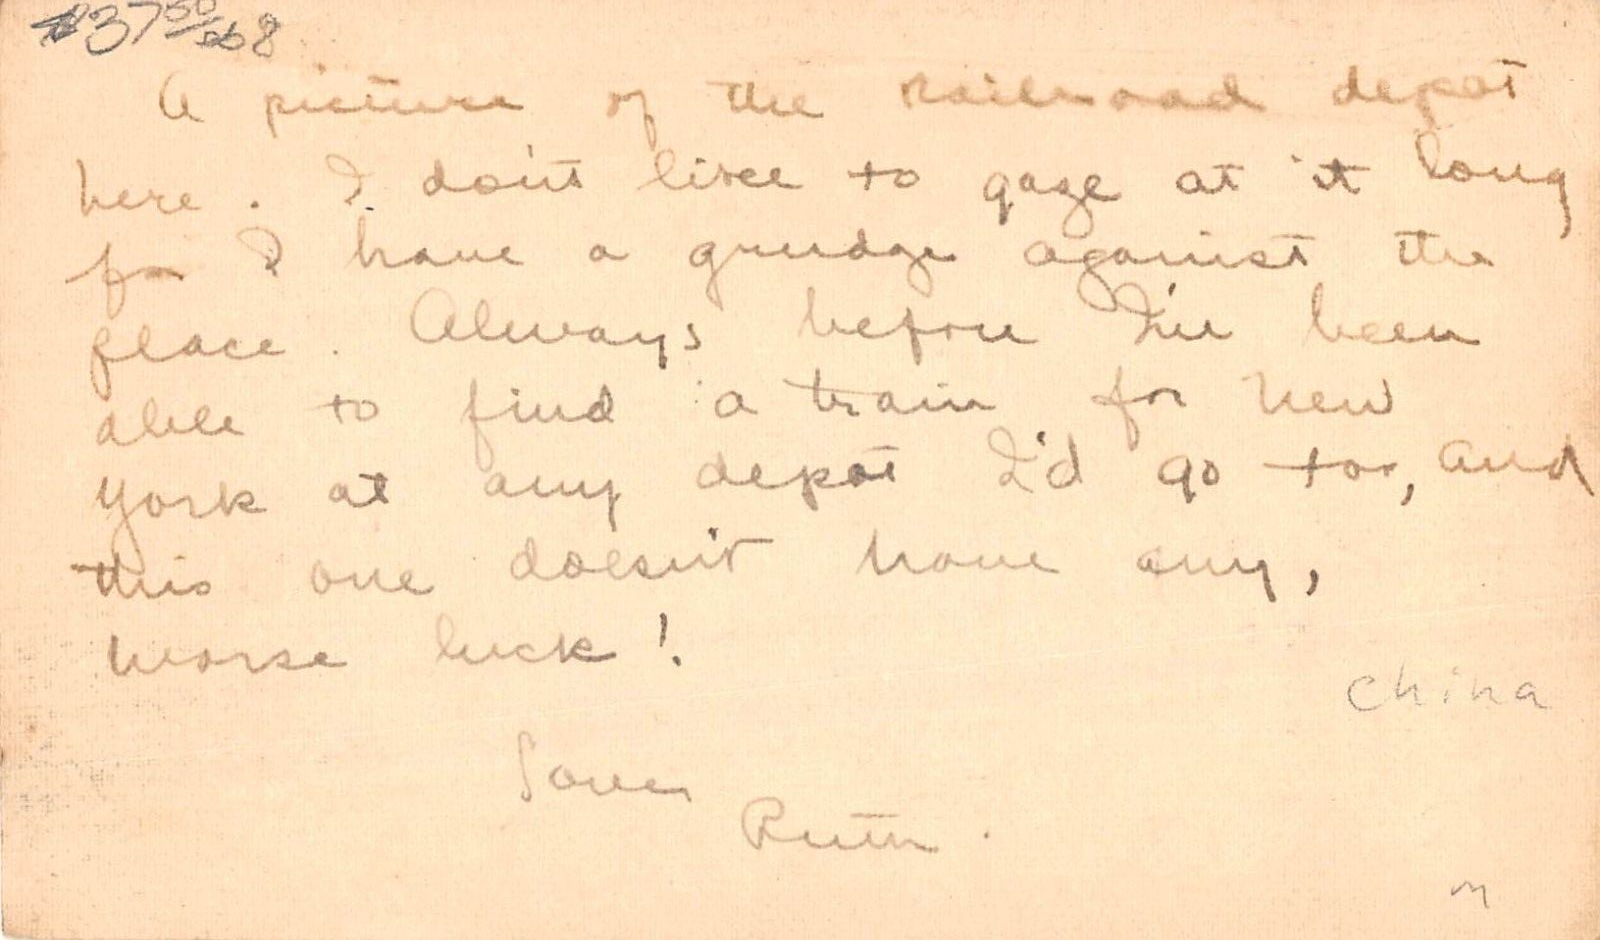 #37 50
A picture of the railroad depot
here. I don't like to gaze at it long
for I have a grudge against the
place. Always before I've been
able to find a train for New
York at any depot I'd go to, and
this one doesn't have any,
worse luck!
Love
Ruth.
China
m